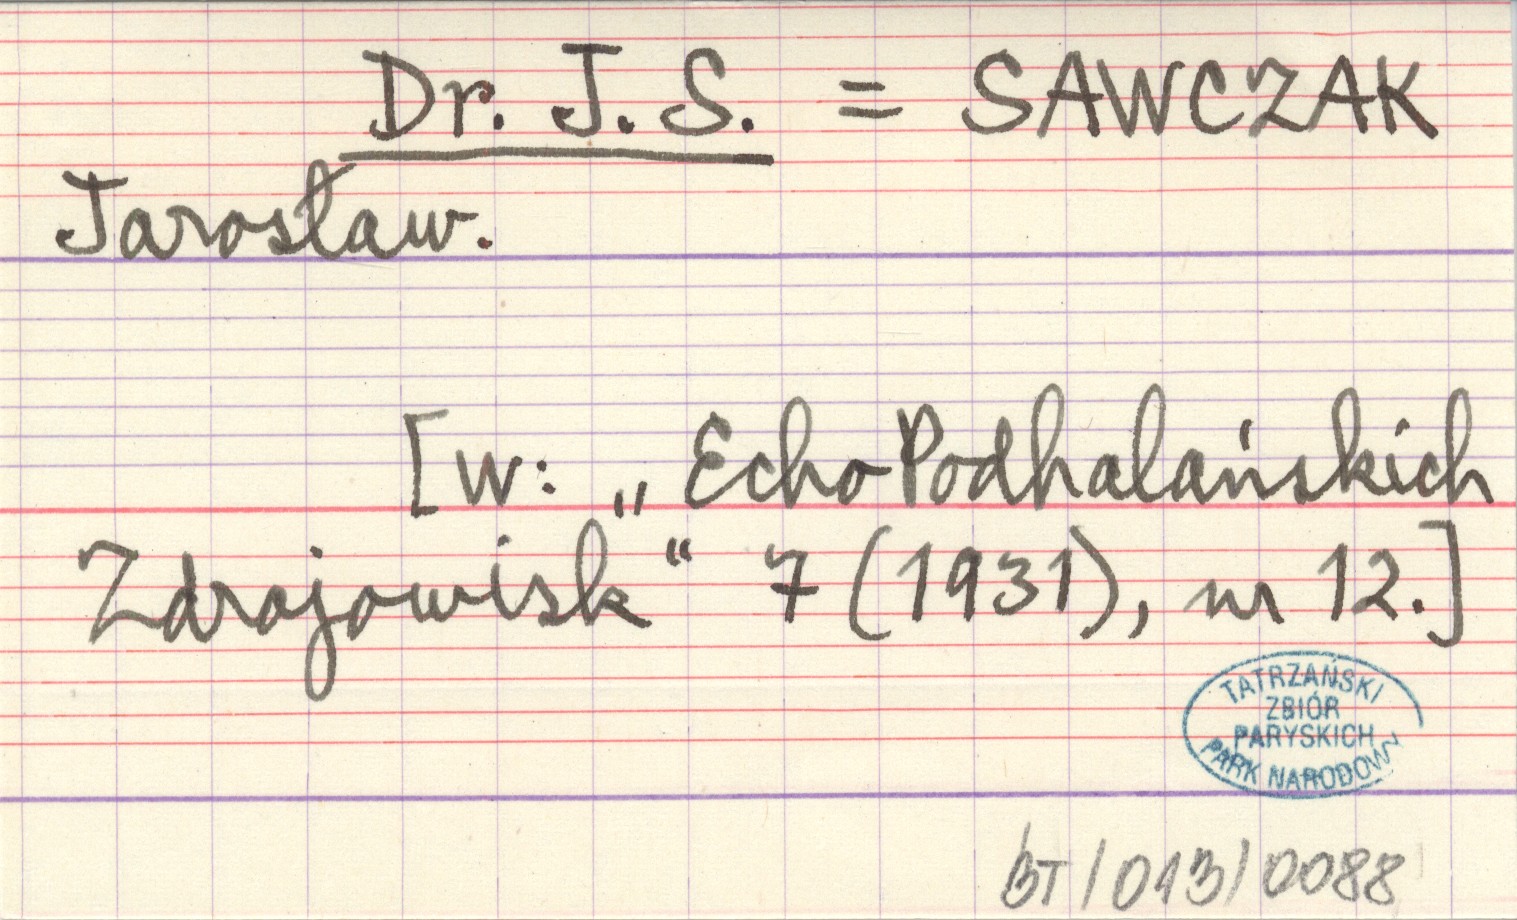 Dr. J. S. = SAWCZAK
Jarosław.
[w: „Echo Podhalańskich
Zdrojowisk“ 7 (1931), nr 12.]
TATRZAŃSKI
ZBIÓR
PARYSKICH
PARK NARODOWY
BT/013/0088